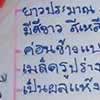 ยาวประมาณ
มีสีขาว สีเหลือ
ค่อนข้างแบ
เมล็ดรูปร่าง
เป็นผลแห้ง